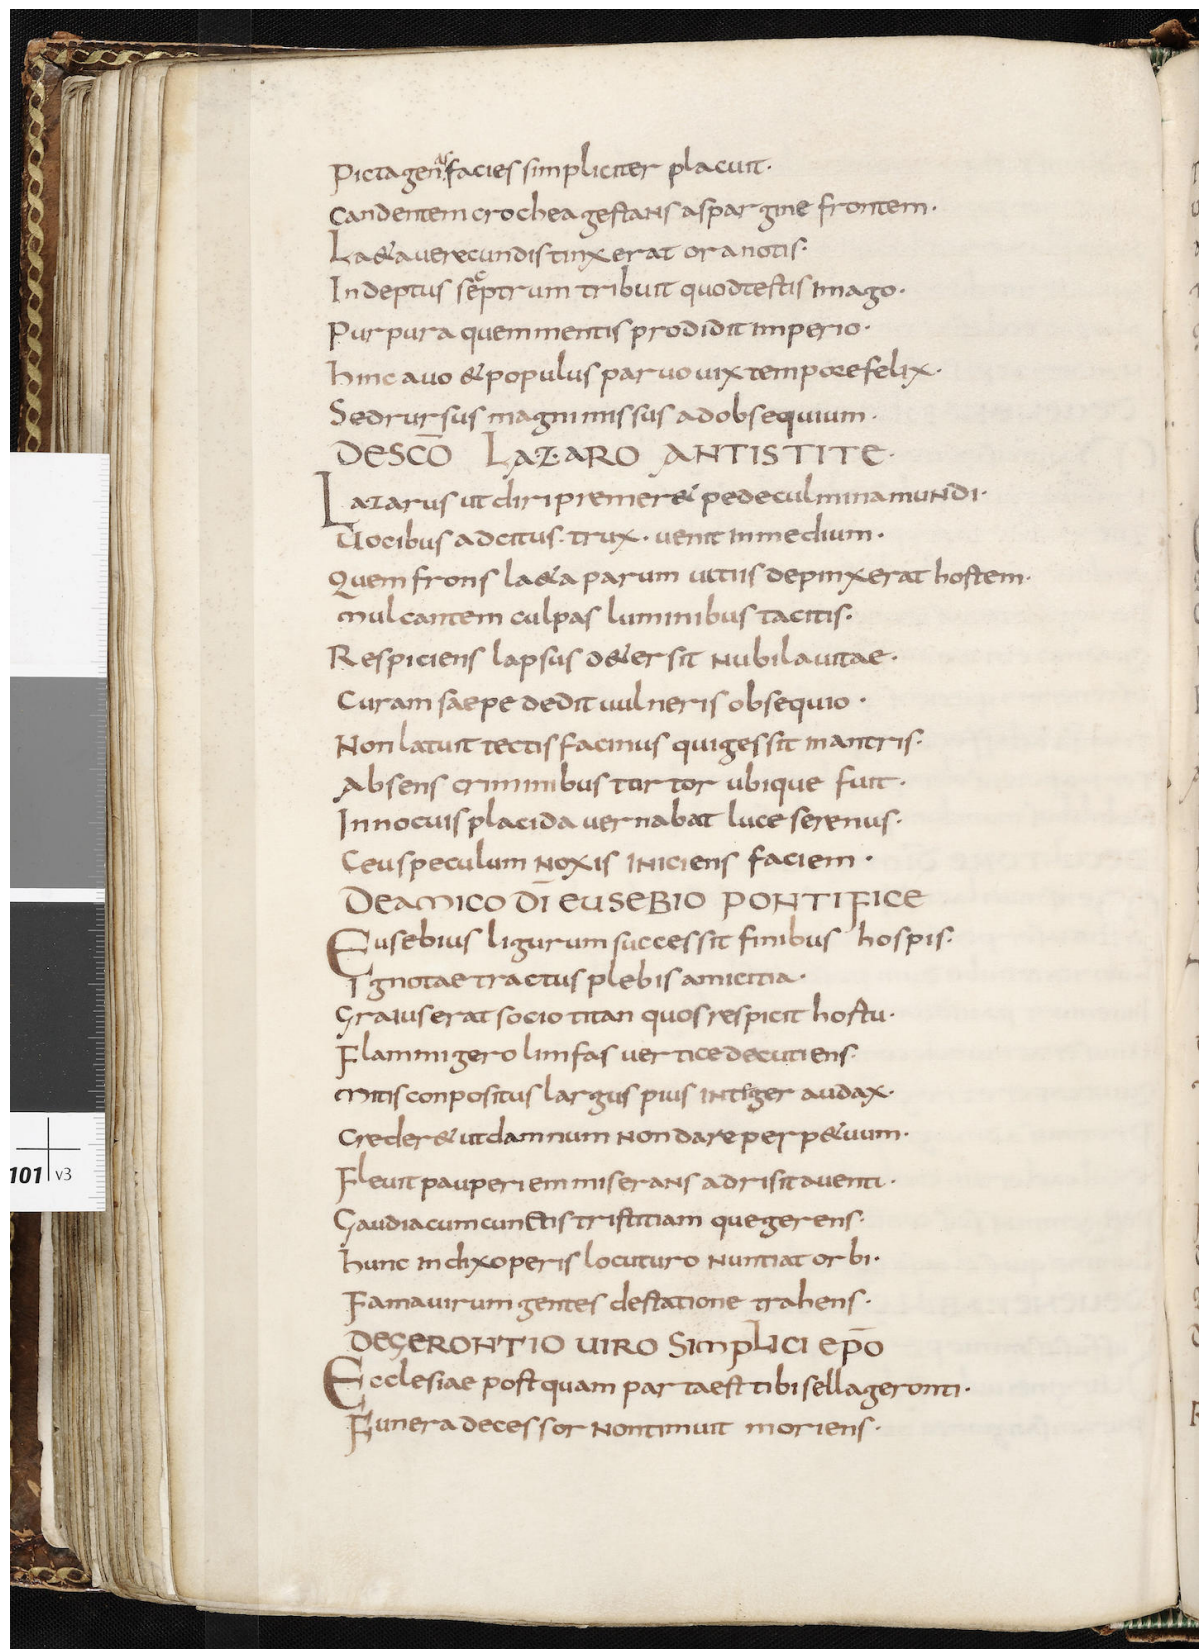 Pictagenas facies simpliciter placuit·
candentem crochea gestans aspargine frontem·
L& a uerecundis tinxerat ora notis·
Indeptus sceptrum tribuit quod testis imago·
Purpura quem mentis prodidit imperio·
hinc auo & populus paruo uix tempore felix·
Sed rursus magni missus ad obsequium·
DE SCO LAZARO ANTISTITE·
Lazarus ut diri premer& pede culmina mundi·
Uocibus adcitus· trux· uenit in medium·
Quem frons la& a parum uitiis depinxerat hostem·
mulcantem culpas luminibus tacitis·
Respiciens lapsus d& ersit nubila uitae·
Curam saepe dedit uulneris obsequio·
Non latuit tectis facinus qui gessit in antris·
Absens criminibus tortor ubique fuit·
Innocuis placida uernabat luce serenus·
Ceu speculum noxis iniciens faciem·
DE AMICO DI EUSEBIO PONTIFICE
Eusebius ligurum successit finibus hospis·
Ignotae tractus plebis amicitia·
Graius erat socio titan quos respicit hostu·
Flammigero limfas uertice decutiens·
mitis conpositus largus pius integer audax·
creder& ut damnum non dare perp& uum·
Fleuit pauperiem miserans adrisit auenti·
Gaudia cum cunctis tristitiamque gerens·
hunc in dixoperis locuturo nuntiat orbi·
Fama uirum gentes destatione trahens·
DE GERONTIO UIRO SIMPLICI EPO
Ecclesiae postquam parta est tibi sella geronti·
Funera decessor non timuit moriens·